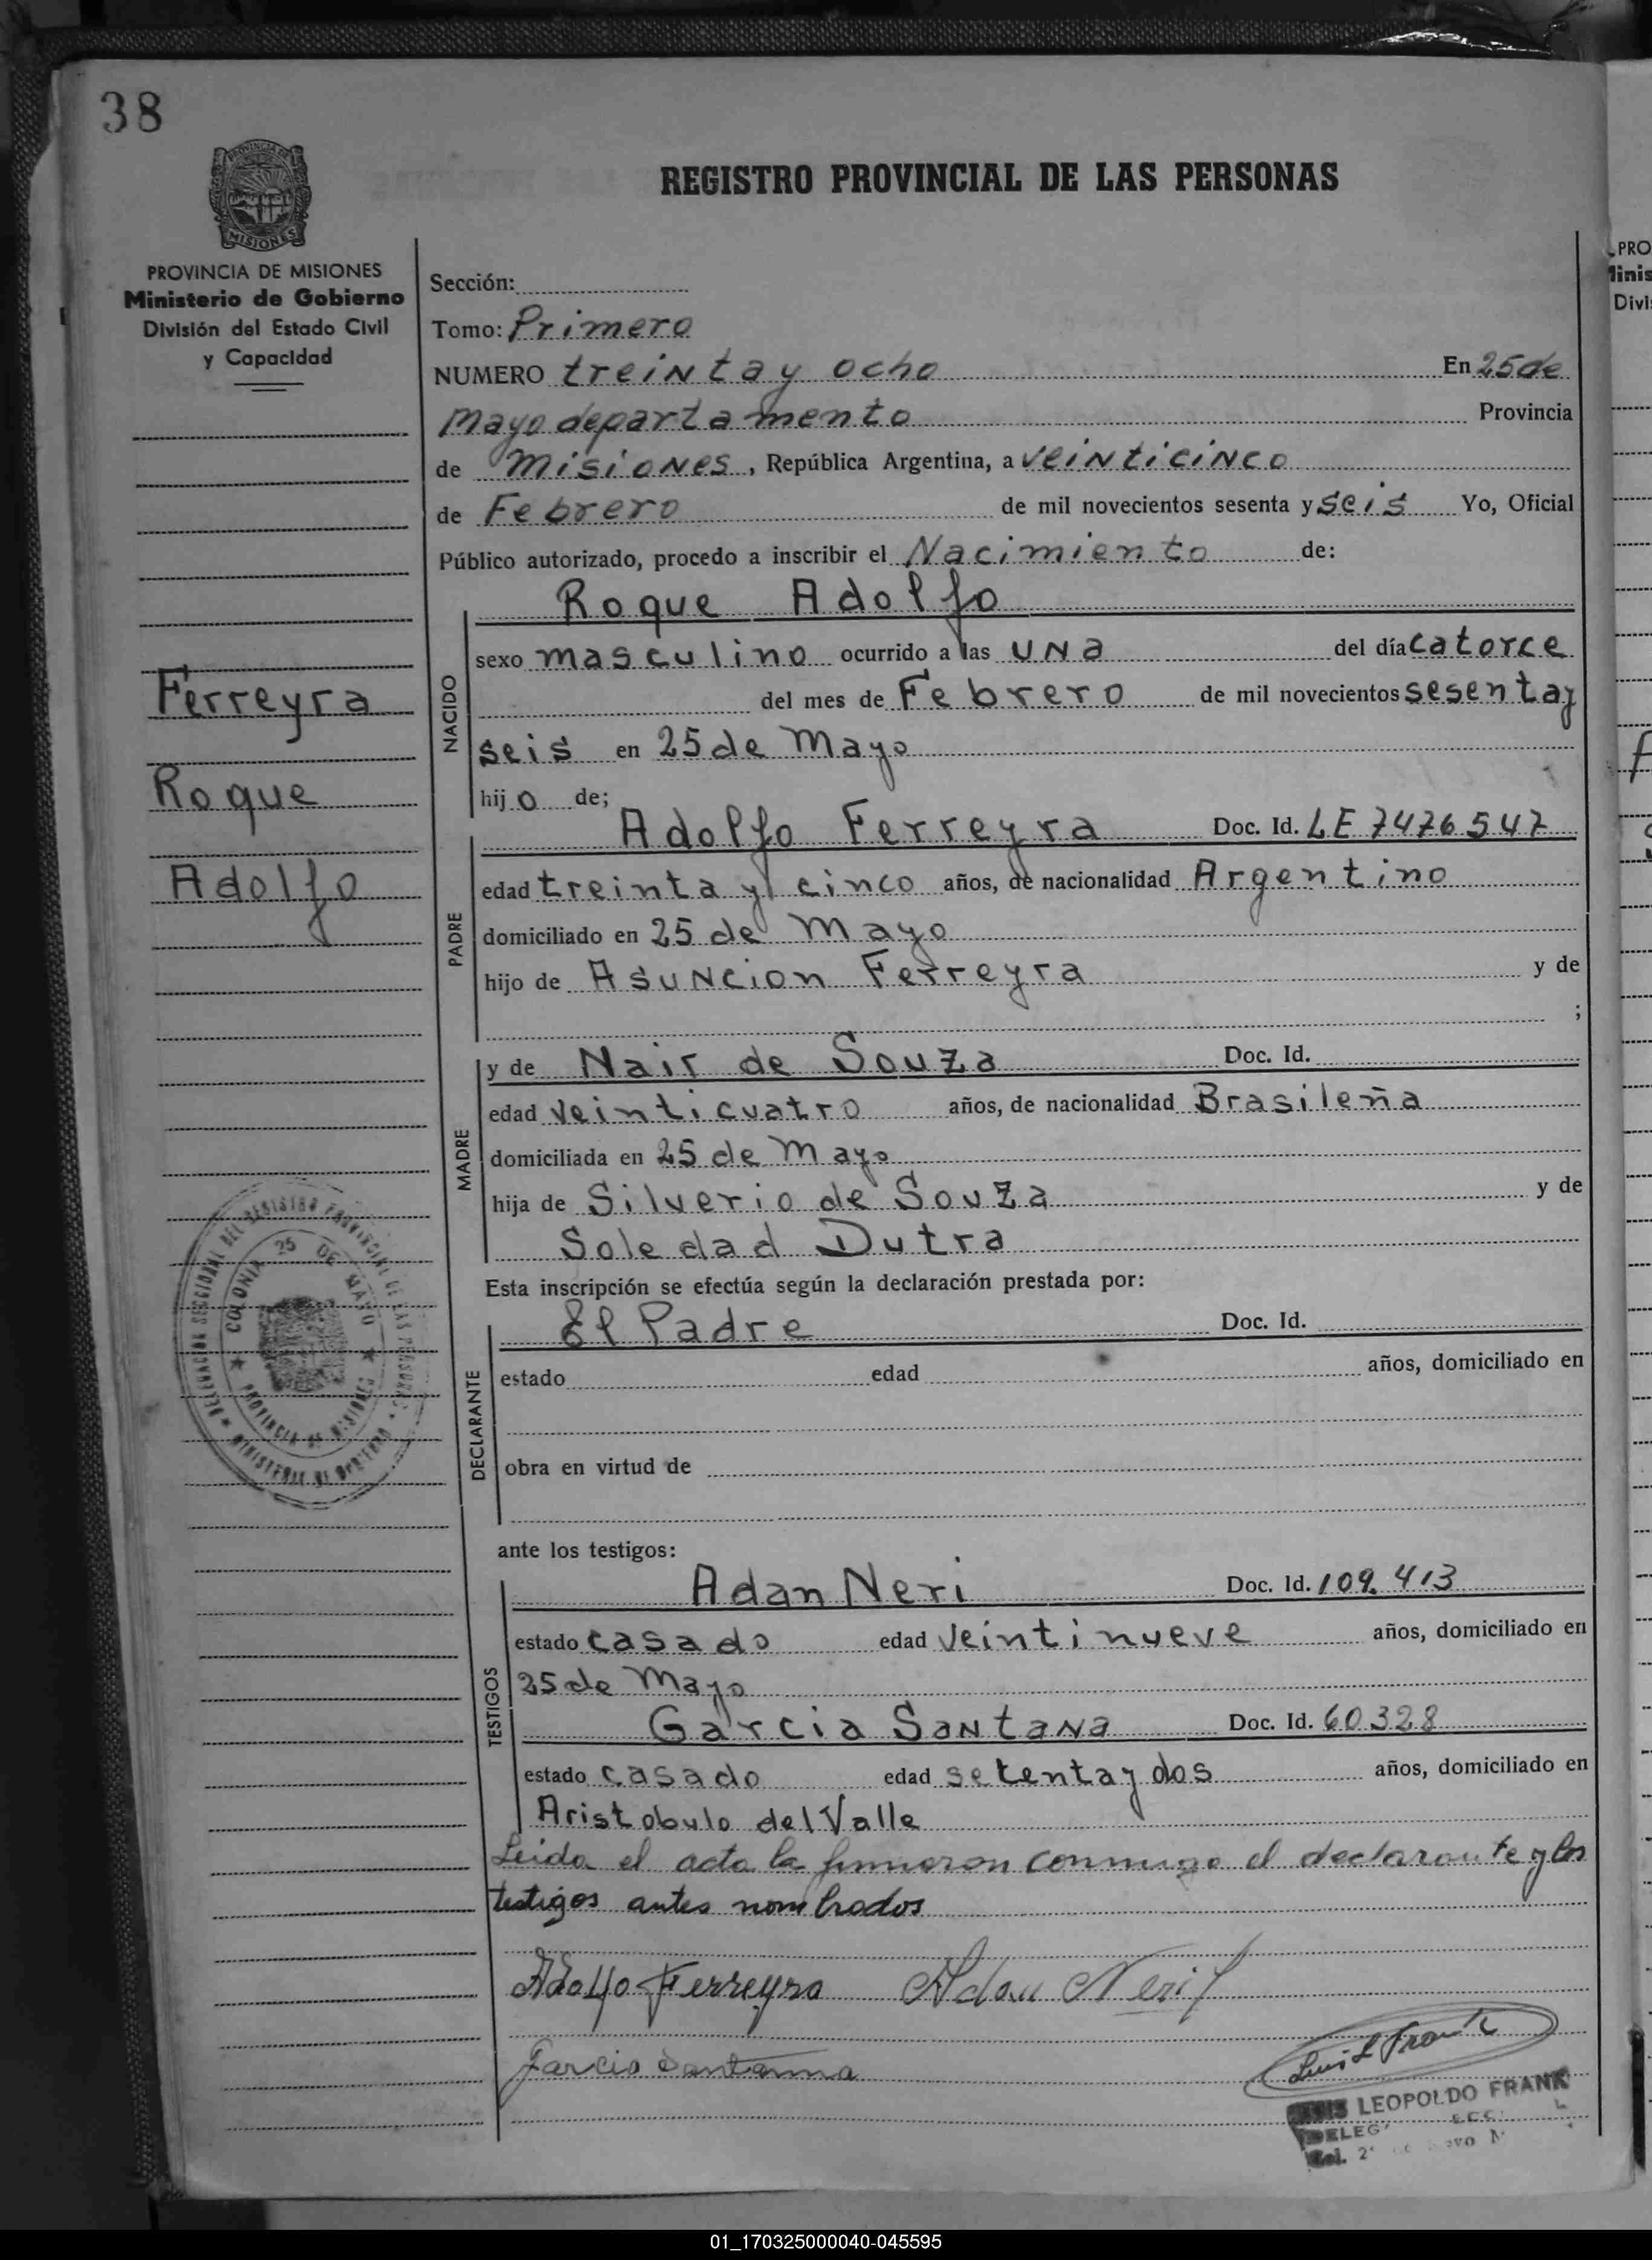 38
PROVINCIA DE MISIONES
REGISTRO PROVINCIAL DE LAS PERSONAS
PROVINCIA DE MISIONES
Ministerio de Gobierno
División del Estado Civil
y Capacidad
Sección:
Tomo: Primero
NUMERO treinta y ocho En 25 de
Mayo departamento Provincia
de Misiones, República Argentina, a veinticinco
de Febrero de mil novecientos sesenta y seis Yo, Oficial
Público autorizado, procedo a inscribir el Nacimiento de:
Roque Adolfo
NACIDO
sexo masculino ocurrido a las una del día catorce
del mes de Febrero de mil novecientos sesenta y
seis en 25 de Mayo
hijo de;
Ferreyra
Roque
Adolfo
PADRE
Adolfo Ferreyra Doc. Id. LE 7476547
edad treinta y cinco años, de nacionalidad Argentino
domiciliado en 25 de Mayo
hijo de Asuncion Ferreyra y de
;
MADRE
y de Nair de Souza Doc. Id.
edad veinticuatro años, de nacionalidad Brasileña
domiciliada en 25 de Mayo
hija de Silverio de Souza y de
Soledad Dutra
DELEGACION SECCIONAL DEL REGISTRO PROVINCIAL DE LAS PERSONAS
COLONIA 25 DE MAYO
PROVINCIA DE MISIONES
MINISTERIO DE GOBIERNO
Esta inscripción se efectúa según la declaración prestada por:
DECLARANTE
El Padre Doc. Id.
estado edad años, domiciliado en
obra en virtud de
ante los testigos:
TESTIGOS
Adan Neri Doc. Id. 109.413
estado casado edad veintinueve años, domiciliado en
25 de Mayo
Garcia Santana Doc. Id. 60328
estado casado edad setenta y dos años, domiciliado en
Aristobulo del Valle
Leida el acta la firmaron conmigo el declarante y los
testigos antes nombrados
Adolfo Ferreyra Adan Neri
Garcia Santanna
Luis L Frank
LUIS LEOPOLDO FRANK
PRO
Minis
Divi
01_170325000040-045595